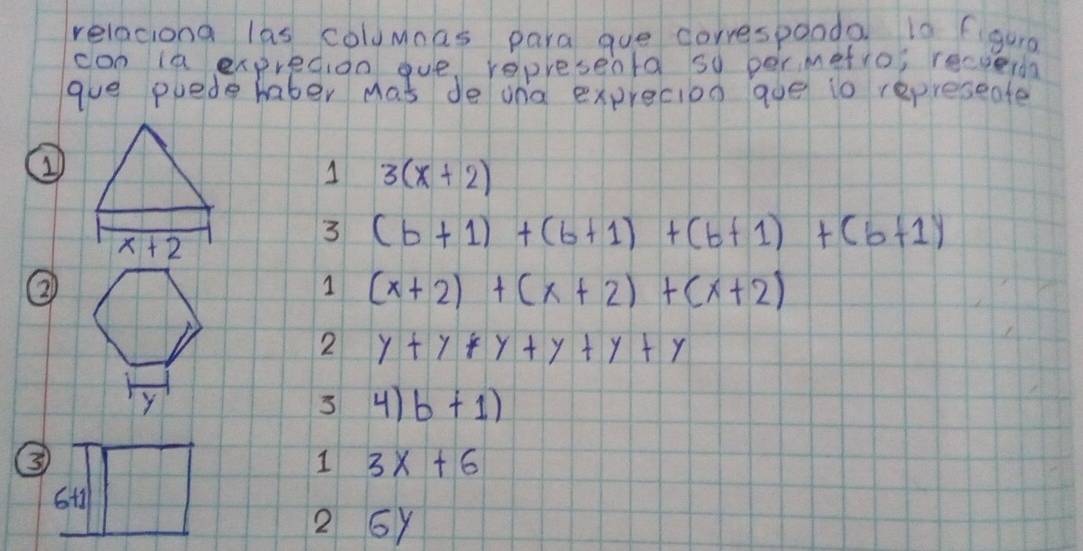 relaciona las columnas para que corresponda la figura
con la expreción que representa su perimetro; recuerda
que puede haber mas de una expreción que lo represente
1
1 3(x + 2)
x + 2
3 (b + 1) + (b + 1) + (b + 1) + (b + 1)
2
1 (x + 2) + (x + 2) + (x + 2)
2 y + y + y + y + y + y
y
3 4)b + 1)
3
1 3x + 6
6+1
2 6y